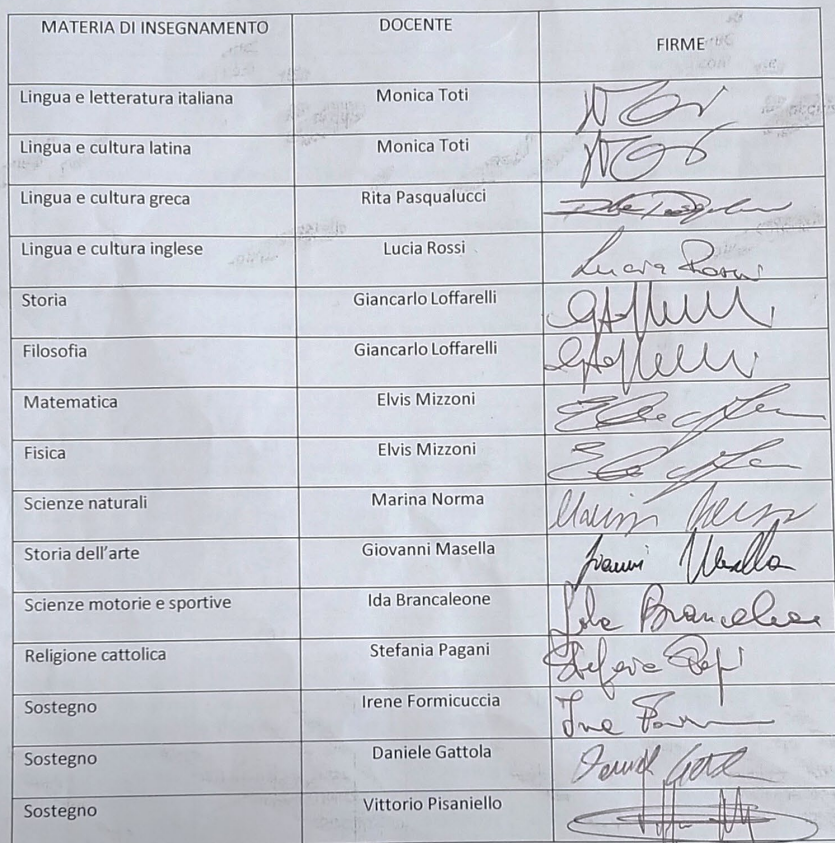 MATERIA DI INSEGNAMENTO DOCENTE FIRME
Lingua e letteratura italiana Monica Toti
Lingua e cultura latina Monica Toti
Lingua e cultura greca Rita Pasqualucci
Lingua e cultura inglese Lucia Rossi Lucia Rossi
Storia Giancarlo Loffarelli
Filosofia Giancarlo Loffarelli
Matematica Elvis Mizzoni
Fisica Elvis Mizzoni
Scienze naturali Marina Norma
Storia dell'arte Giovanni Masella
Scienze motorie e sportive Ida Brancaleone
Religione cattolica Stefania Pagani
Sostegno Irene Formicuccia
Sostegno Daniele Gattola
Sostegno Vittorio Pisaniello